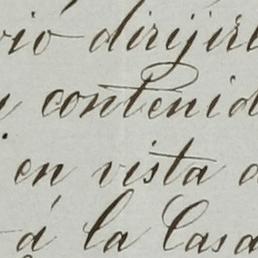 vió dirijirl
y contenid
en vista d
á la Casa